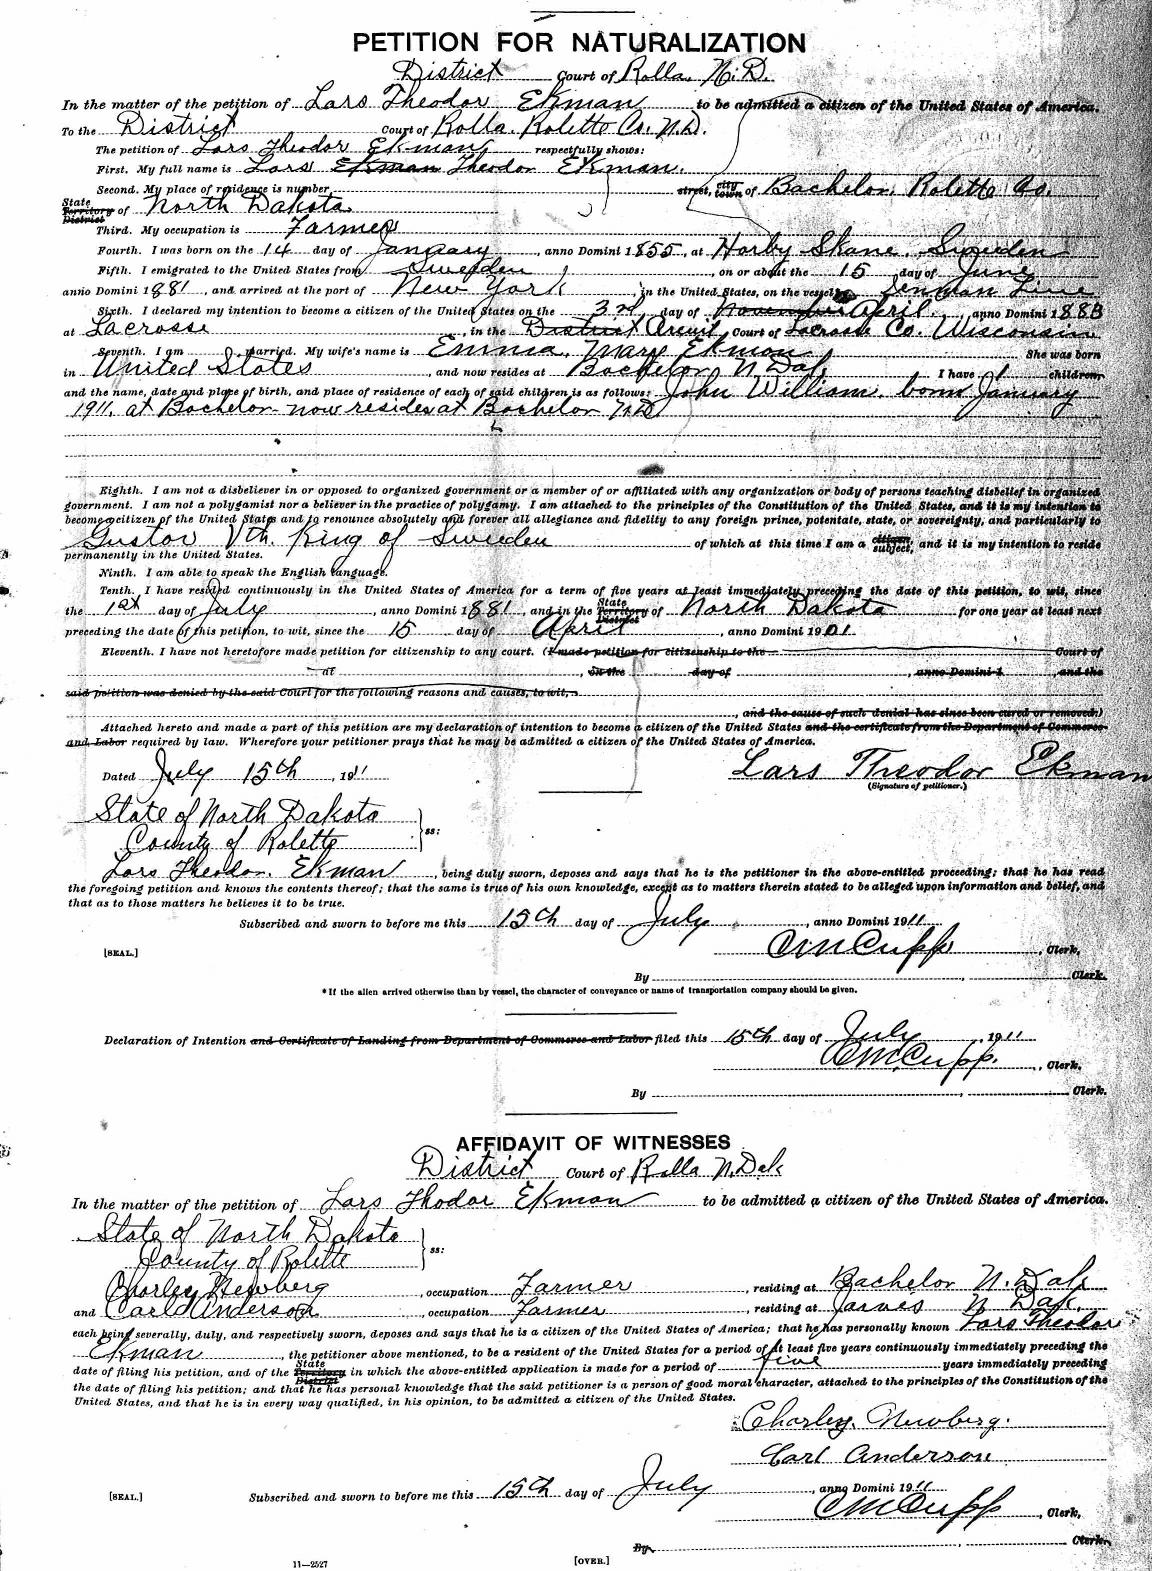 PETITION FOR NATURALIZATION
District Court of Rolla, N.D.
In the matter of the petition of Lars Theodor Ekman to be admitted a citizen of the United States of America.
To the District Court of Rolla. Rolette Co. N.D.
The petition of Lars Theodor Ekman respectfully shows:
First. My full name is Lars Ekman Theodor Ekman.
Second. My place of residence is number street, city town of Bachelor, Rolette Co.
State Territory District of North Dakota
Third. My occupation is Farmer
Fourth. I was born on the 14 day of January, anno Domini 1855, at Horby Skane, Sweden
Fifth. I emigrated to the United States from Sweden, on or about the 15 day of June
anno Domini 1881, and arrived at the port of New York in the United States, on the vessel Line
Sixth. I declared my intention to become a citizen of the United States on the 3rd day of November April, anno Domini 1888
at Lacrosse, in the District Circuit Court of Lacrosse Co. Wisconsin
Seventh. I am married. My wife's name is Emma Mary Ekman She was born
in United States, and now resides at Bachelor N. Dak I have 1 children,
and the name, date and place of birth, and place of residence of each of said children is as follows: John William. born January
1911. at Bachelor now resides at Bachelor N.D
Eighth. I am not a disbeliever in or opposed to organized government or a member of or affiliated with any organization or body of persons teaching disbelief in organized
government. I am not a polygamist nor a believer in the practice of polygamy. I am attached to the principles of the Constitution of the United States, and it is my intention to
become a citizen of the United States and to renounce absolutely and forever all allegiance and fidelity to any foreign prince, potentate, state, or sovereignty, and particularly to
Gustav Vth. King of Sweden of which at this time I am a citizen subject, and it is my intention to reside
permanently in the United States.
Ninth. I am able to speak the English language.
Tenth. I have resided continuously in the United States of America for a term of five years at least immediately preceding the date of this petition, to wit, since
the 1st day of July, anno Domini 1881, and in the State Territory District of North Dakota for one year at least next
preceding the date of this petition, to wit, since the 15 day of April, anno Domini 1901.
Eleventh. I have not heretofore made petition for citizenship to any court. (I made petition for citizenship to the Court of
at in the day of, anno Domini 1, and the
said petition was denied by the said Court for the following reasons and causes, to wit,
, and the cause of such denial has since been cured or removed.)
Attached hereto and made a part of this petition are my declaration of intention to become a citizen of the United States and the certificate from the Department of Commerce
and Labor required by law. Wherefore your petitioner prays that he may be admitted a citizen of the United States of America.
Dated July 15th, 1911 Lars Theodor Ekman
(Signature of petitioner.)
State of North Dakota
County of Rolette ss:
Lars Theodor. Ekman, being duly sworn, deposes and says that he is the petitioner in the above-entitled proceeding; that he has read
the foregoing petition and knows the contents thereof; that the same is true of his own knowledge, except as to matters therein stated to be alleged upon information and belief, and
that as to those matters he believes it to be true.
Subscribed and sworn to before me this 15th day of July, anno Domini 1911
[SEAL.] CM Cupp, Clerk,
By, Clerk.
*If the alien arrived otherwise than by vessel, the character of conveyance or name of transportation company should be given.
Declaration of Intention and Certificate of Landing from Department of Commerce and Labor filed this 15th day of July, 1911
CM Cupp., Clerk.
By, Clerk.
AFFIDAVIT OF WITNESSES
District Court of Rolla N. Dak
In the matter of the petition of Lars Thodor Ekman to be admitted a citizen of the United States of America.
State of North Dakota
County of Rolette ss:
Charley Newberg, occupation Farmer, residing at Bachelor N. Dak
and Carl Anderson, occupation Farmer, residing at Jarvis N Dak.
each being severally, duly, and respectively sworn, deposes and says that he is a citizen of the United States of America; that he has personally known Lars Theodor
Ekman, the petitioner above mentioned, to be a resident of the United States for a period of at least five years continuously immediately preceding the
date of filing his petition, and of the State Territory District in which the above-entitled application is made for a period of five years immediately preceding
the date of filing his petition; and that he has personal knowledge that the said petitioner is a person of good moral character, attached to the principles of the Constitution of the
United States, and that he is in every way qualified, in his opinion, to be admitted a citizen of the United States.
Charley. Newberg.
Carl Anderson
Subscribed and sworn to before me this 15th day of July, anno Domini 1911
[SEAL.] CM Cupp, Clerk,
By, Clerk.
11—2527 [OVER.]